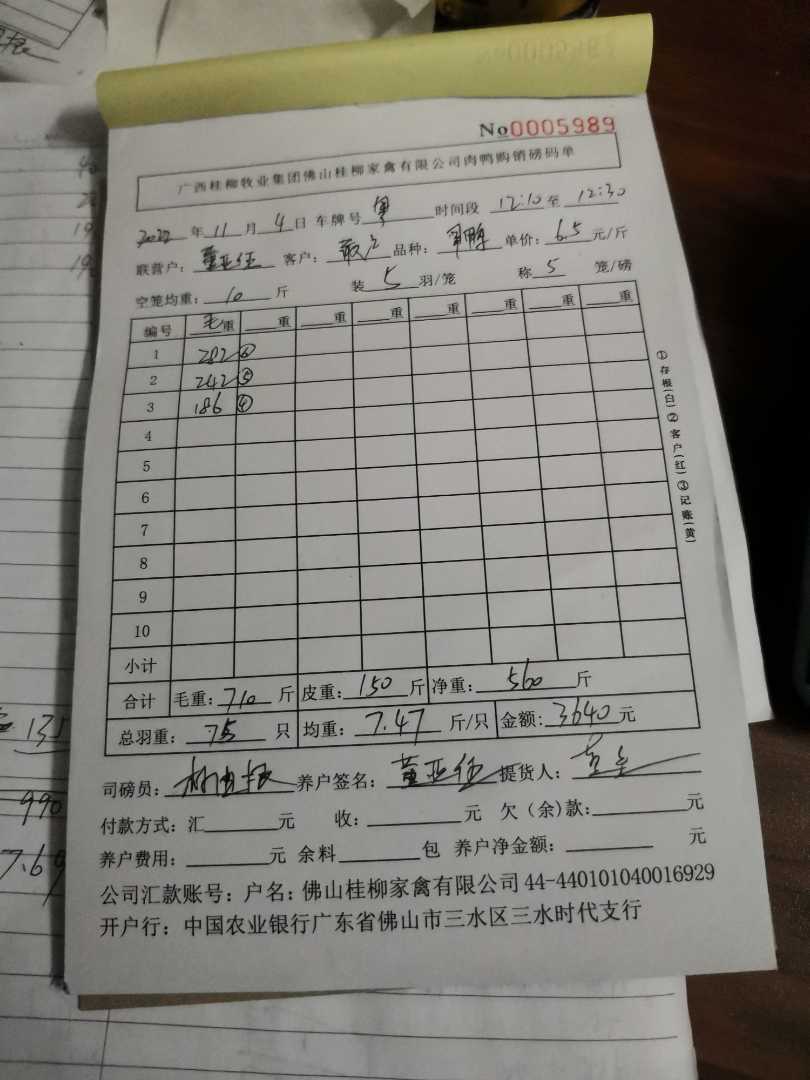 No0005989
广西桂柳牧业集团佛山桂柳家禽有限公司肉鸭购销磅码单
2022年11月4日 车牌号 时间段 12:10至12:30
联营户：董亚伍 客户：散户 品种： 单价：6.5元/斤
空笼均重：10斤 装5羽/笼 称5笼/磅
编号 毛重 重 重 重 重 重 重 重
1 282⑥
2 242⑤
3 186④
4
5
6
7
8
9
10
小计
合计 毛重：710斤 皮重：150斤 净重：560斤
总羽重：75只 均重：7.47斤/只 金额：3640元
司磅员： 养户签名：董亚伍 提货人：
付款方式：汇 元 收： 元 欠（余）款： 元
养户费用： 元 余料 包 养户净金额： 元
公司汇款账号：户名：佛山桂柳家禽有限公司 44-440101040016929
开户行：中国农业银行广东省佛山市三水区三水时代支行
①存根(白)②客户(红)③记账(黄)
135
990
7.6